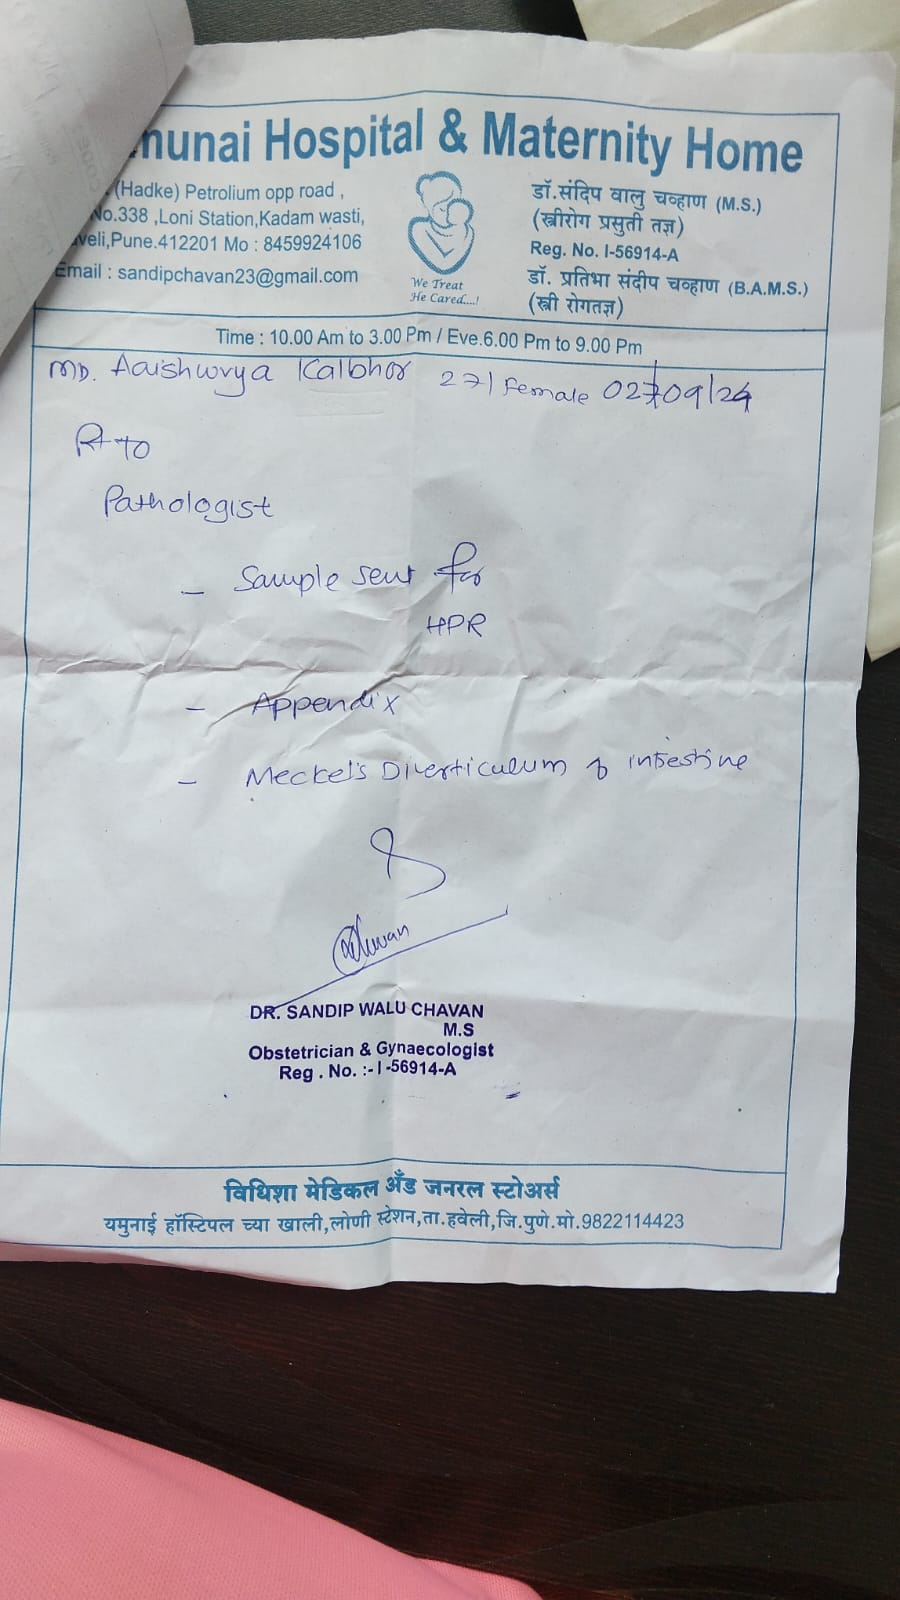 munai Hospital & Maternity Home
(Hadke) Petrolium opp road ,
No.338 ,Loni Station,Kadam wasti,
veli,Pune.412201 Mo : 8459924106
Email : sandipchavan23@gmail.com
We Treat
He Cared....!
डॉ.संदिप वालु चव्हाण (M.S.)
(स्त्रीरोग प्रसुती तज्ञ)
Reg. No. I-56914-A
डॉ. प्रतिभा संदीप चव्हाण (B.A.M.S.)
(स्त्री रोगतज्ञ)
Time : 10.00 Am to 3.00 Pm / Eve.6.00 Pm to 9.00 Pm
Aaishwrya Kalbhor 27/female 02/09/24
to
Pathologist
- Sample sent for
HPR
- Appendix
- Meckel's Diverticulum of intestine
DR. SANDIP WALU CHAVAN
M.S
Obstetrician & Gynaecologist
Reg . No. :- I -56914-A
विथिशा मेडिकल अँड जनरल स्टोअर्स
यमुनाई हॉस्टिपल च्या खाली,लोणी स्टेशन,ता.हवेली,जि.पुणे.मो.9822114423